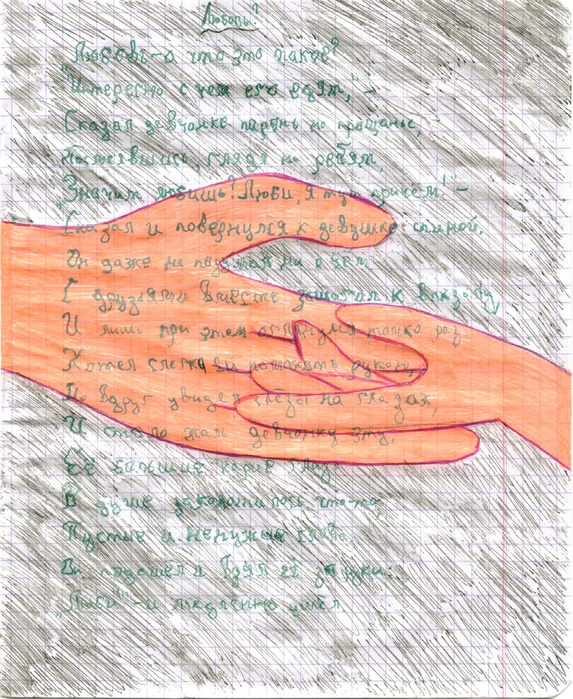 Любовь?
"Любовь-а что это такое?
Интересно с чем его едят,"-
Сказал девчонке парень на прощанье,
глядя на ребят,
"Значит любишь! Люби, я тут причем!"-
Сказал и повернулся к девушке спиной,
Он даже не подумал ни о чем
С друзьями вместе зашагал к вокзалу
И лишь при этом оглянулся только раз
Хотел слегка ей помахать рукою,
Но вдруг увидел слёзы на глазах,
И стало жаль девчонку эту,
Её большие карие глаза
В душе заколотилось что-то,
Пустые и ненужные слова,
Он подошел и взял её за руки:
"Люби"-и медленно ушёл